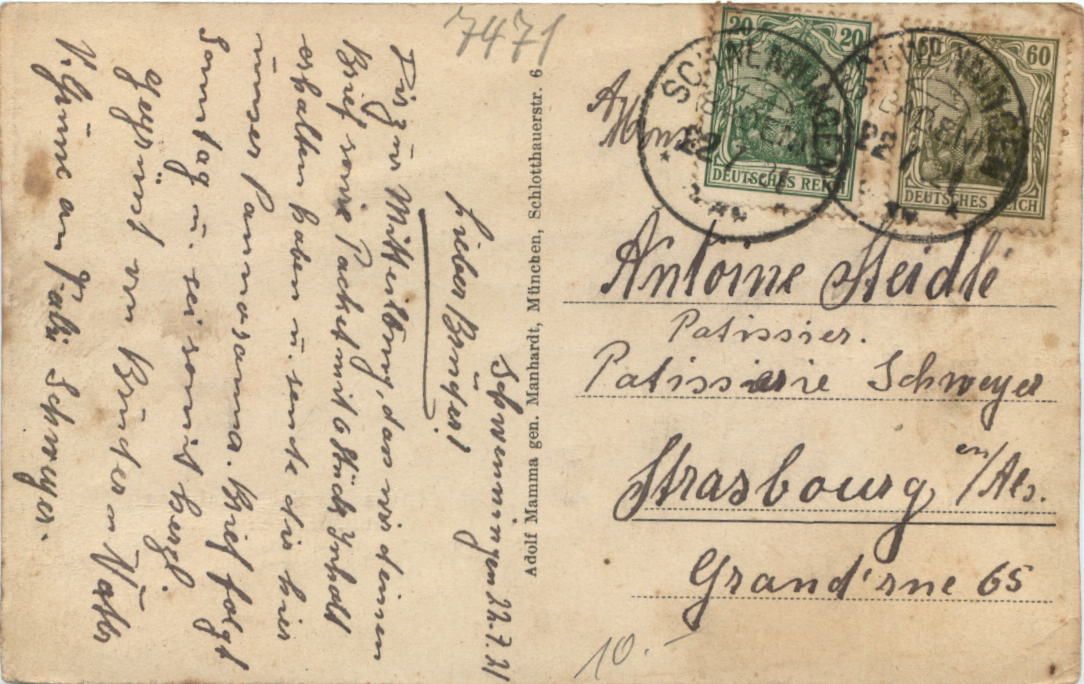 7471
Schwenningen 22.7.21
Lieber Bruder!
Diz zur Mitteilung, das wir deinen
Brief sowie Packet mit 6 Stück Inhalt
erhalten haben u. sende dir hier
unser Pannorama. Brief folgt
Sonntag u. sei somit herzl.
Gegrüst von Bruder u. Vater
V. Grüsse an Fabr. Schweyer.
Adolf Mamma gen. Manhardt, München, Schlotthauerstr. 6
20 20
DEUTSCHES REICH
60 60
DEUTSCHES REICH
SCHWENNINGEN
22 7 21
SCHWENNINGEN
22 7 21
Antoine Heidlé
Patissier.
Patisserie Schweyer
Strasbourg en/Als.
Grand'rue 65
10.-